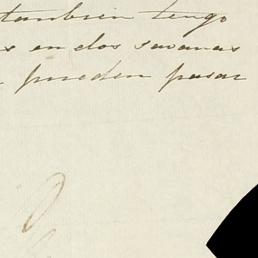 tambien tengo
s en dos savanas
pueden pasar